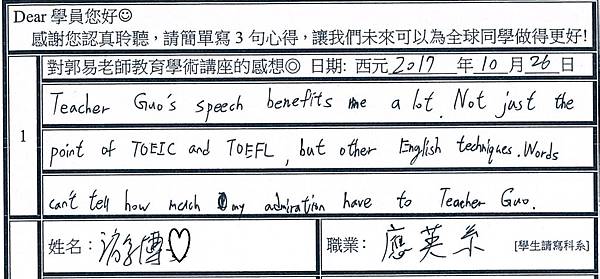 Dear 學員您好☺
感謝您認真聆聽，請簡單寫 3 句心得，讓我們未來可以為全球同學做得更好!
對郭易老師教育學術講座的感想◎ 日期: 西元 2017 年 10 月 26 日
1
Teacher Guo's speech benefits me a lot. Not just the
point of TOEIC and TOEFL, but other English techniques. Words
can't tell how much my admiration have to Teacher Guo.
姓名： ♡ 職業： 應英系 [學生請寫科系]